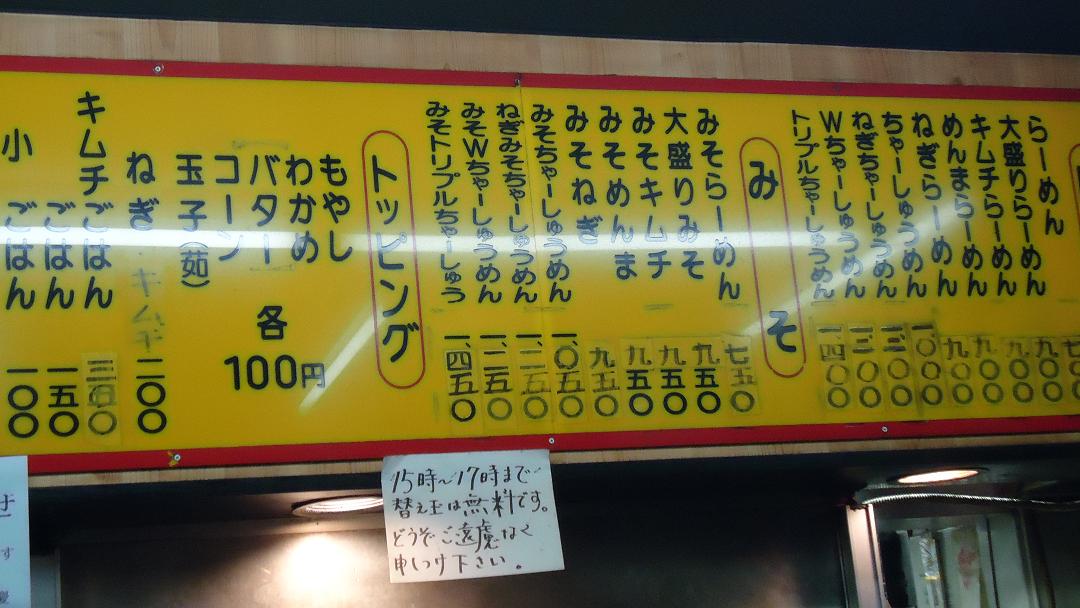 らーめん 七〇〇
大盛りらーめん 九〇〇
キムチらーめん 九〇〇
めんまらーめん 九〇〇
ねぎらーめん 九〇〇
ちゃーしゅうめん 一、〇〇〇
ねぎちゃーしゅうめん 一、二〇〇
Wちゃーしゅうめん 一、二〇〇
トリプルちゃーしゅうめん 一、四〇〇
みそ
みそらーめん 七五〇
大盛りみそ 九五〇
みそキムチ 九五〇
みそめんま 九五〇
みそねぎ 九五〇
みそちゃーしゅうめん 一、〇五〇
ねぎみそちゃーしゅうめん 一、二五〇
みそWちゃーしゅうめん 一、二五〇
みそトリプルちゃーしゅう 一、四五〇
トッピング
もやし
わかめ
バター
コーン
玉子(茹)
各100円
ねぎ・キムチ 二〇〇
キムチごはん 三五〇
ごはん 一五〇
小ごはん 一〇〇
15時〜17時まで
替え玉は無料です。
どうぞご遠慮なく
申しつけ下さい。